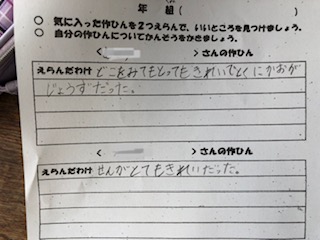 年　組（
○ 気に入った作ひんを２つえらんで、いいところを見つけましょう。
○ 自分の作ひんについてかんそうをかきましょう。
〈　　　　　〉さんの作ひん
えらんだわけ どこをみてもとってもきれいでとくにかおが
じょうずだった。
〈　　　　　〉さんの作ひん
えらんだわけ せんがとてもきれいだった。